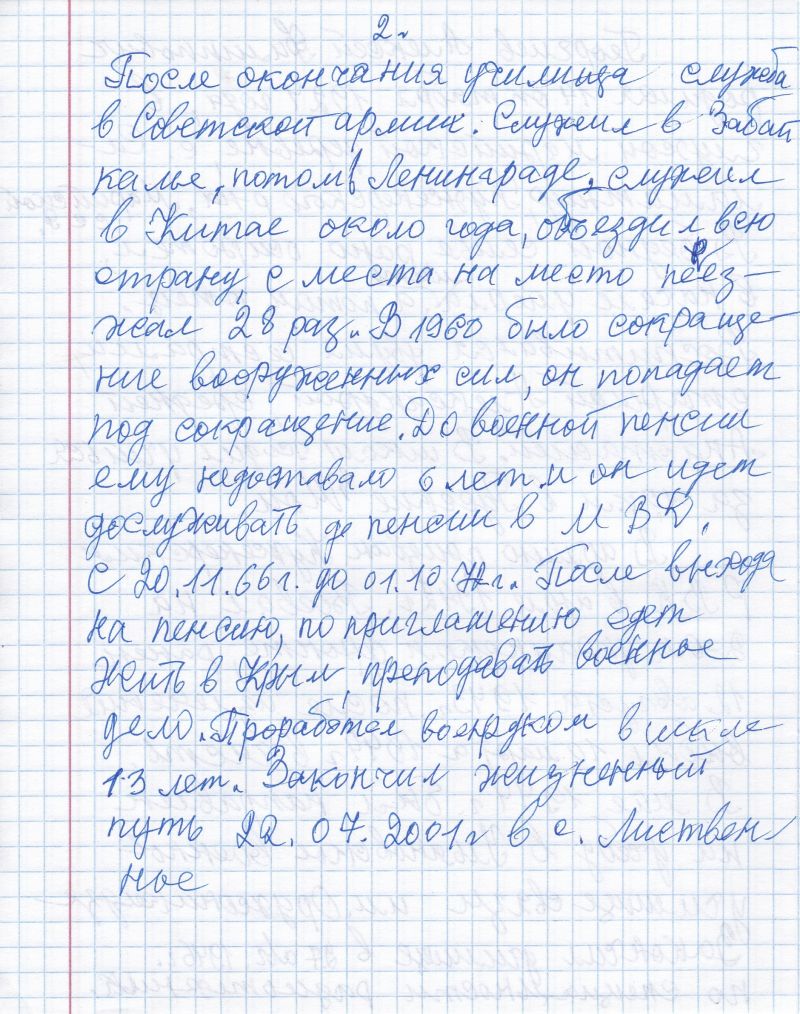 2.
После окончания училища служба
в Советской армии. Служил в Забай
калье, потом в Ленинграде, служил
в Китае около года, объездил всю
страну, с места на место переез-
жал 28 раз. В 1960 было сокраще-
ние вооруженных сил, он попадает
под сокращение. До военной пенсии
ему недоставало 6 лет и он идет
дослуживать до пенсии в МВД.
С 20.11.66г. до 01.10 72г. После выхода
на пенсию, по приглашению едет
жить в Крым, преподавать военное
дело. Проработал военруком в школе
13 лет. Закончил жизненный
путь 22.07.2001г в с. Листвен-
ное